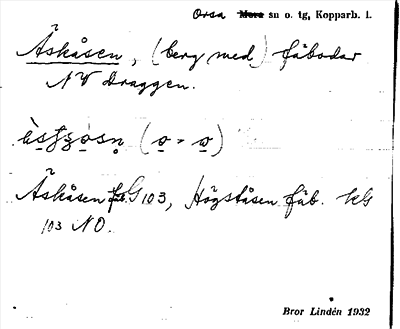 Orsa Mora sn o. tg, Kopparb. l.
Äskåsen, (berg med) fäbodar
NV Draggen.
Äskåsen fb. G 103, Högståsen fäb. kG
103 NO.
Bror Lindén 1932